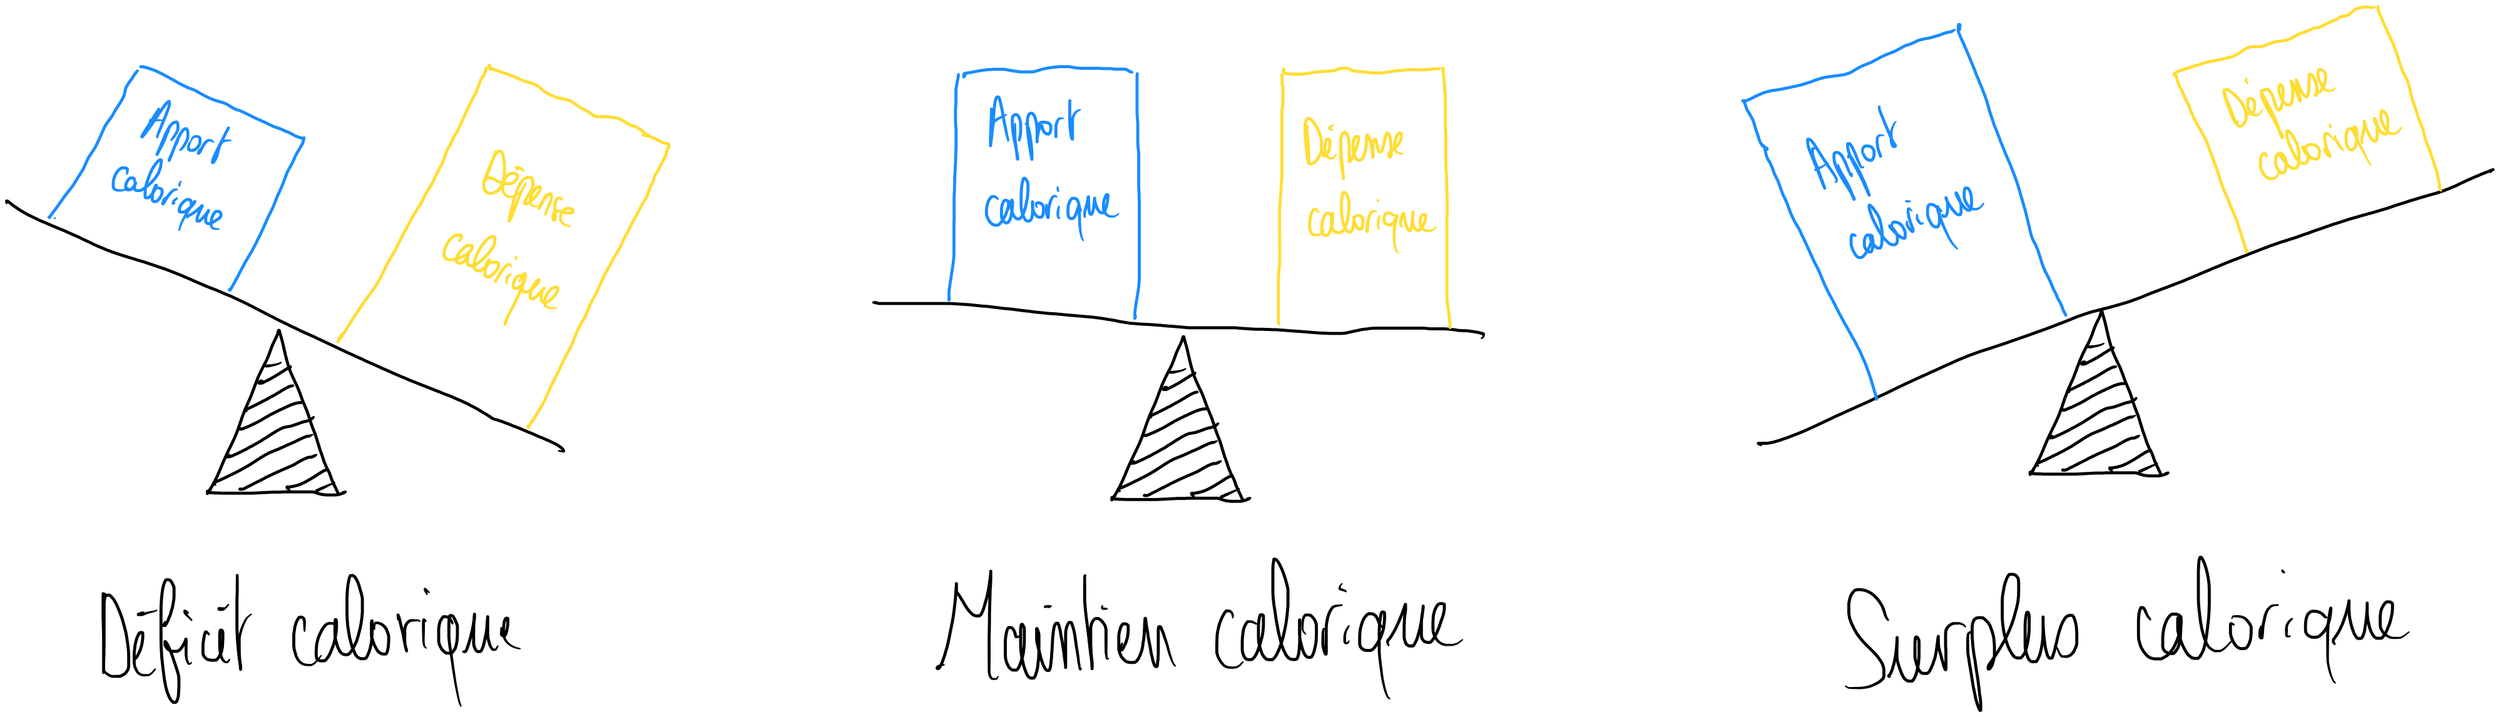 Apport
calorique
Dépense
calorique
Déficit calorique
Apport
calorique
Dépense
calorique
Maintien calorique
Apport
calorique
Dépense
calorique
Surplus calorique